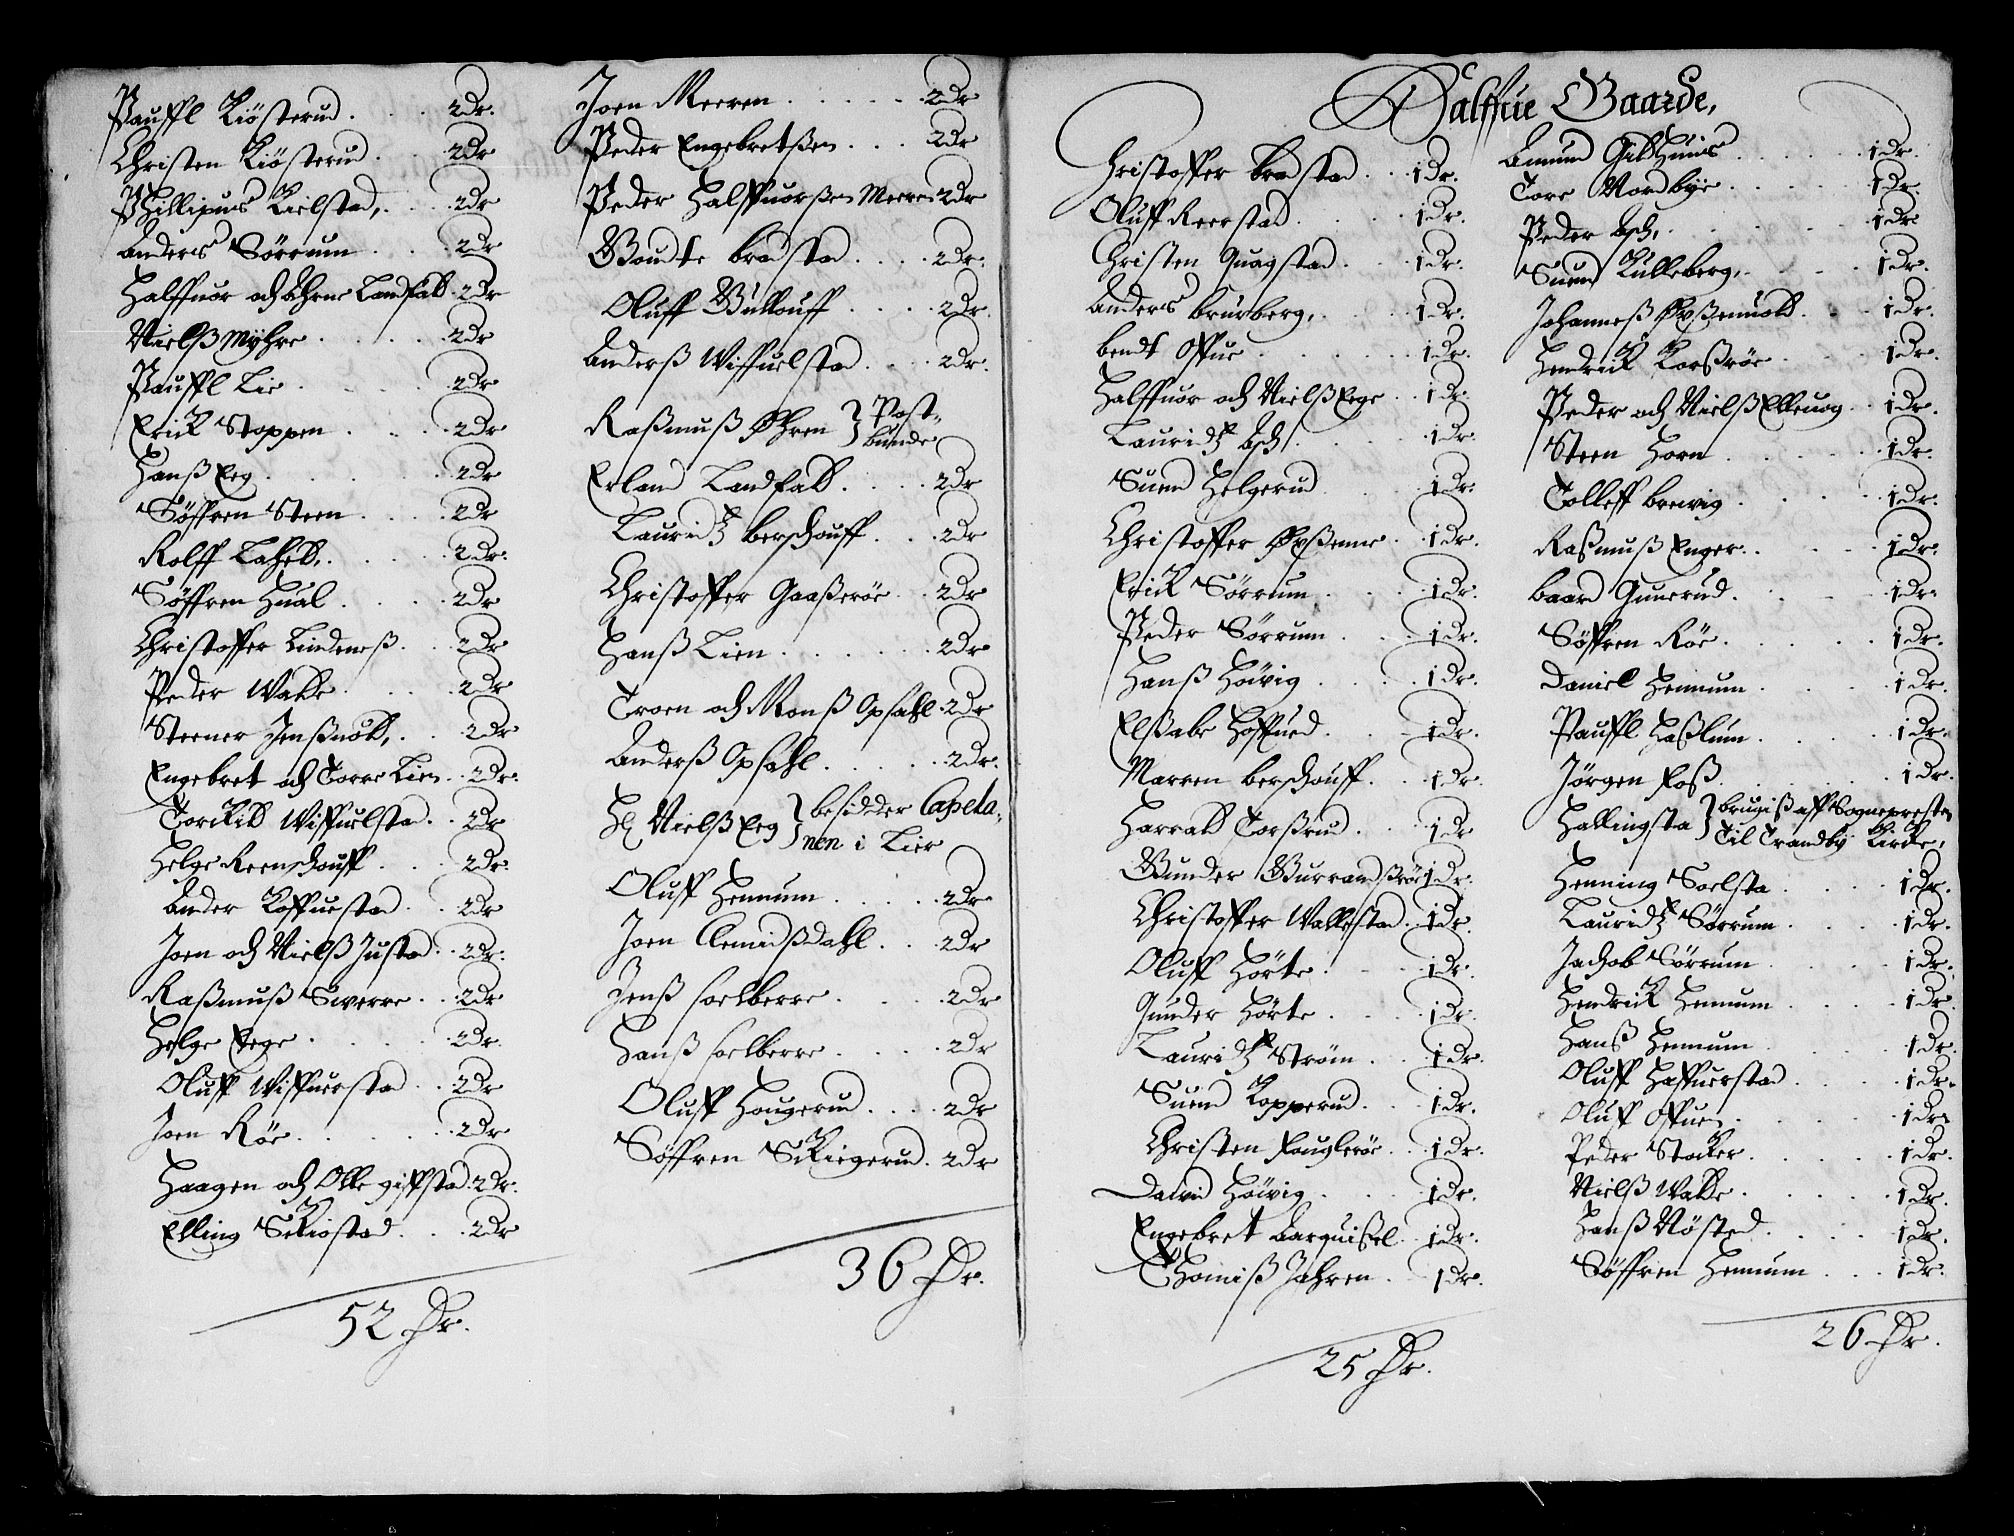 Pauffl Kiösterud . . . 2 Dr.
Christen Kiösterud . . 2 Dr
Phillipus Kielstad, . . 2 Dr
Anders Sörrum . . . 2 Dr
Halffuor och Ahrne Landfald . 2 Dr
Nielß Myhre . . . . 2 Dr
Pauffl Lie . . . . 2 Dr
Erick Stoppen . . . 2 Dr
Hanß Eeg . . . . 2 Dr
Söffren Steen . . . 2 Dr
Rolff Lahell . . . . 2 Dr.
Söffren Hual . . . 2 Dr
Christoffer Lindeneß . . 2 Dr
Peder Walle . . . 2 Dr
Steener Jenßuold, . . 2 Dr
Engebret och Torre Lien . . 2 Dr.
Torckild Wiffuelstad . . 2 Dr
Helge Reenschouff . . 2 Dr.
Ander Koffuestad . . 2 Dr
Joen och Nielß Justad . . 2 Dr.
Raßmuß Swerre . . 2 Dr
Helge Eege . . . . 2 Dr.
Oluff Wiffuerstad . . 2 Dr
Joen Röe . . . . 2 Dr
Haagen och Olle giffstad . 2 Dr.
Elling Skiöstad . . . 2 Dr
52 Dr.
Joen Meeren . . . . . 2 Dr
Peder Engebretßen . . . 2 Dr
Peder Halffuorßen Meeren 2 Dr
Goudte bradstad . . . . 2 Dr.
Oluff Gullouff . . . . 2 Dr.
Anderß Wiffuelstad . . . 2 Dr.
Raßmuß Öhren } Post-
bunde
Erland Landfald . . . . 2 Dr
Lauridtz berschouff . . . 2 Dr
Christoffer Gaaßeröe . . 2 Dr
Hanß Lien . . . . . . 2 Dr
Troen och Monß Opsahl . 2 Dr
Anderß Opsahl . . . . . 2 Dr.
H: Nielß Eeg } besidder Capela-
nen i Lier
Oluff Hennum . . . . 2 Dr
Joen Clemidßdahl . . . 2 Dr
Jenß foelberre . . . . 2 Dr
Hanß foelberre . . . . 2 Dr
Oluff Hougerud . . . . 2 Dr
Söffren Skiegerud . 2 Dr
36 Dr.
Halffue Gaarde,
Christoffer bradstad . . 1 Dr.
Oluff Reerstad . . . . 1 Dr.
Christen Quagstad . . . 1 Dr.
Anders brurberg, . . . 1 Dr.
bendt Offue . . . . . 1 Dr.
Halffuor och Nielß Eege . . 1 Dr.
Lauridtz bsch . . . . 1 Dr.
Suend Helgerud . . . 1 Dr.
Christoffer Öxßenne . . 1 Dr.
Erick Sörrum . . . 1 Dr.
Peder Sörrum . . . 1 Dr.
Hanß Höwig . . . . 1 Dr.
Elßabe Hoffued . . . 1 Dr.
Marren berschouff . . . 1 Dr.
Harrald Torßrud . . . 1 Dr
Gunder Gurrandßröe 1 Dr.
Christoffer Wallestad . . 1 Dr.
Oluff Hörte . . . . 1 Dr.
Gunder Hörte . . . . 1 Dr.
Lauridtz Ström . . . 1 Dr.
Suend Kopperud . . . 1 Dr.
Christen Fougleröe . . 1 Dr.
David Höwig . . . . 1 Dr.
Engebret barquißel . . 1 Dr.
Thomiß Jahren . . . 1 Dr.
25 Dr.
Amund Gilhuus . . . . . 1 Dr.
Tore Nordbye . . . . . 1 Dr.
Peder bsch, . . . . . . 1 Dr.
Suend Kulleberg, . . . . 1 Dr.
Johanneß Öxßenuold . . . 1 Dr.
Hendrick Korßröe . . . . 1 Dr.
Peder och Nielß Elleuog . . 1 Dr.
Steen Horn . . . . . . 1 Dr.
Tolleff brewig . . . . . 1 Dr.
Raßmuß Enger . . . . . 1 Dr.
baard Gunerud . . . . . 1 Dr.
Söffren Röe . . . . . . 1 Dr.
Daniel Hennum . . . . 1 Dr.
Pauffl Haßlum . . . . . 1 Dr.
Jörgen Foß . . . . . . 1 Dr.
Hallingsta } brugiß aff Sogneprestn
Til Trandby Kirke,
Henning Soelsta . . . . 1 Dr.
Lauridtz Sörrum . . . . 1 Dr.
Jachob Sörrum . . . . 1 Dr.
Hendrick Hennum . . . . 1 Dr
Hanß Hennum . . . . . 1 Dr.
Oluff Haffuerstad . . . . 1 Dr.
Oluff Offuen . . . . . 1 Dr
Peder Stocker . . . . . 1 Dr.
Nielß Walle . . . . . 1 Dr.
Hanß Nösted . . . . . 1 Dr.
Söffren Hennum . . . 1 Dr.
26 Dr.